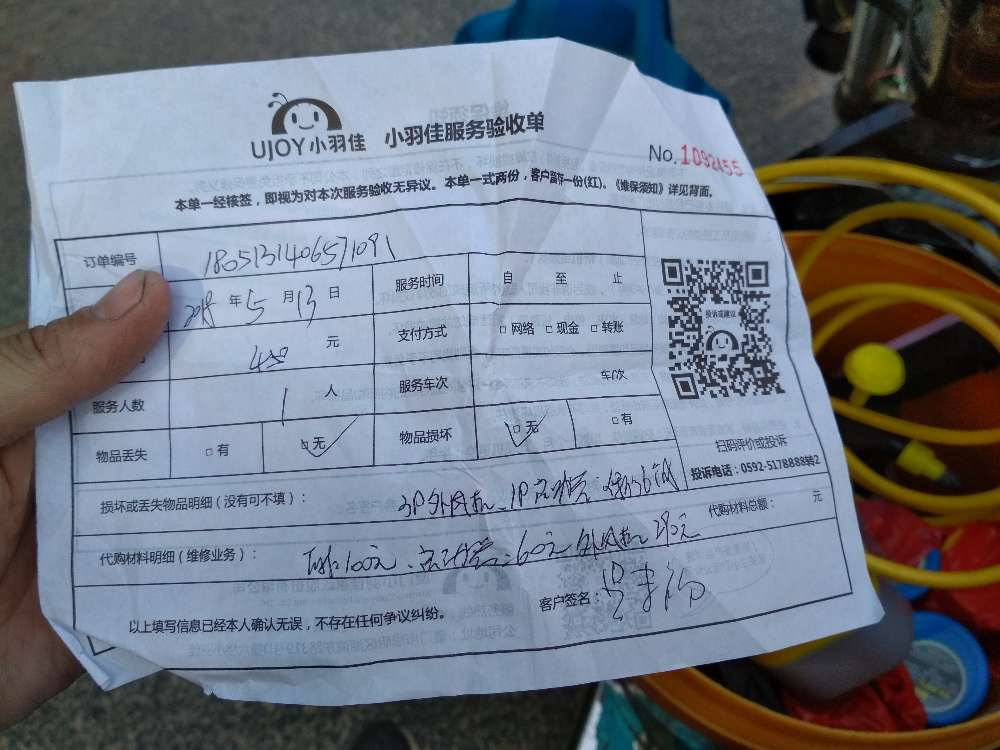 UJOY小羽佳 小羽佳服务验收单
No.1092455
本单一经核签，即视为对本次服务验收无异议。本单一式两份，客户留存一份(红)。《维保须知》详见背面。
订单编号 1805131406571091
2018 年 5 月 13 日 服务时间 自 至 止
450 元 支付方式 □网络 □现金 □转账
服务人数 1 人 服务车次 车/次
物品丢失 □有 □无 物品损坏 □无 □有
投诉或建议
扫码评价或投诉
投诉电话：0592-5178888转2
损坏或丢失物品明细（没有可不填）： 3P外风机、1P
代购材料明细（维修业务）： 100元、 60元 外风机 290元 代购材料总额： 元
以上填写信息已经本人确认无误，不存在任何争议纠纷。 客户签名：